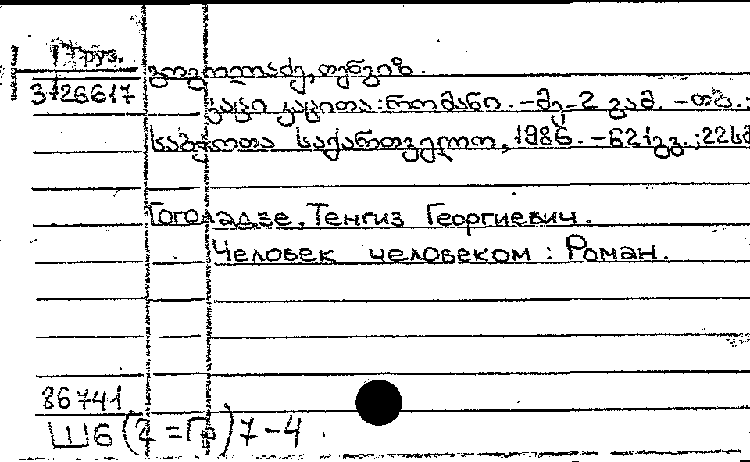 Груз.
3726617
გოგოლაძე, თენგიზ.
კაცი კაცითა: რომანი. – მე-2 გამ. – თბ.:
საბჭოთა საქართველო, 1986. – 621გვ.; 22სმ
Гоголадзе, Тенгиз Георгиевич.
Человек человеком : Роман.
86741
Ш6(2=Гр)7-4